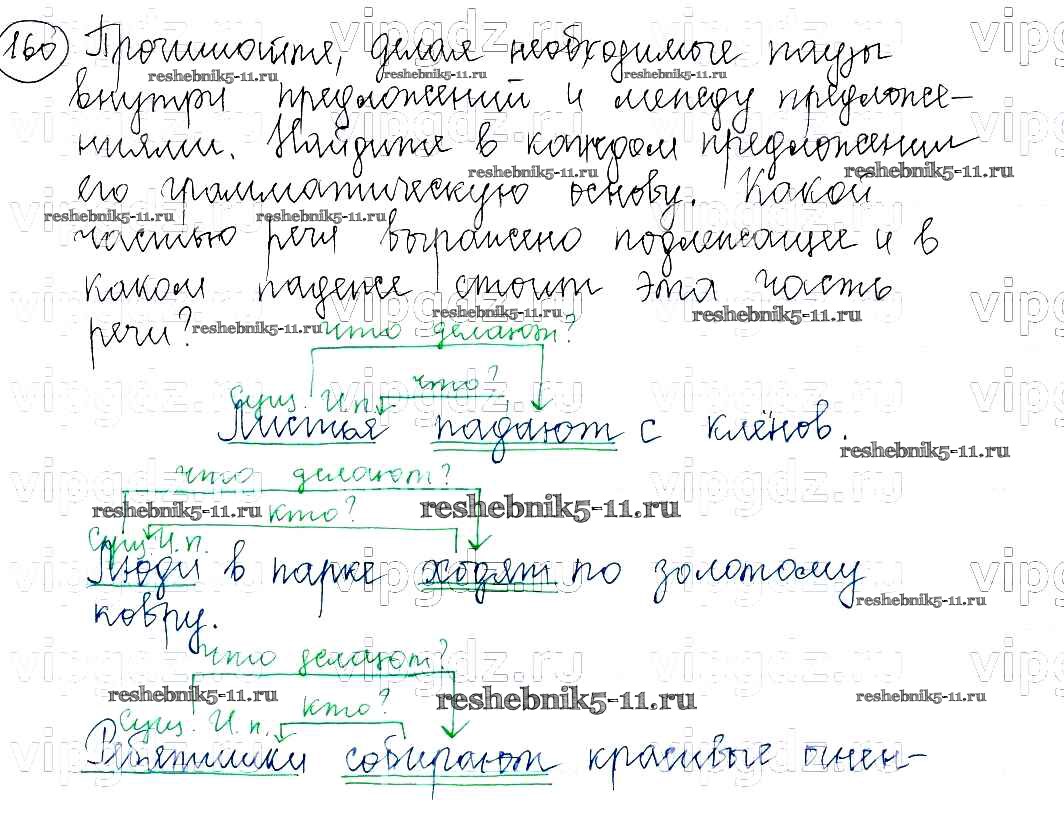 160 Прочитайте, делая необходимые паузы
внутри предложений и между предложе-
ниями. Найдите в каждом предложении
его грамматическую основу. Какой
частью речи выражено подлежащее и в
каком падеже стоит эта часть
речи?
что делают?
что?
Сущ. И.п.
Листья падают с клёнов.
что делают?
кто?
Сущ. И.п.
Люди в парке ходят по золотому
ковру.
что делают?
кто?
Сущ. И.п.
Ребятишки собирают красивые огнен-
vipgdz.ru
reshebnik5-11.ru